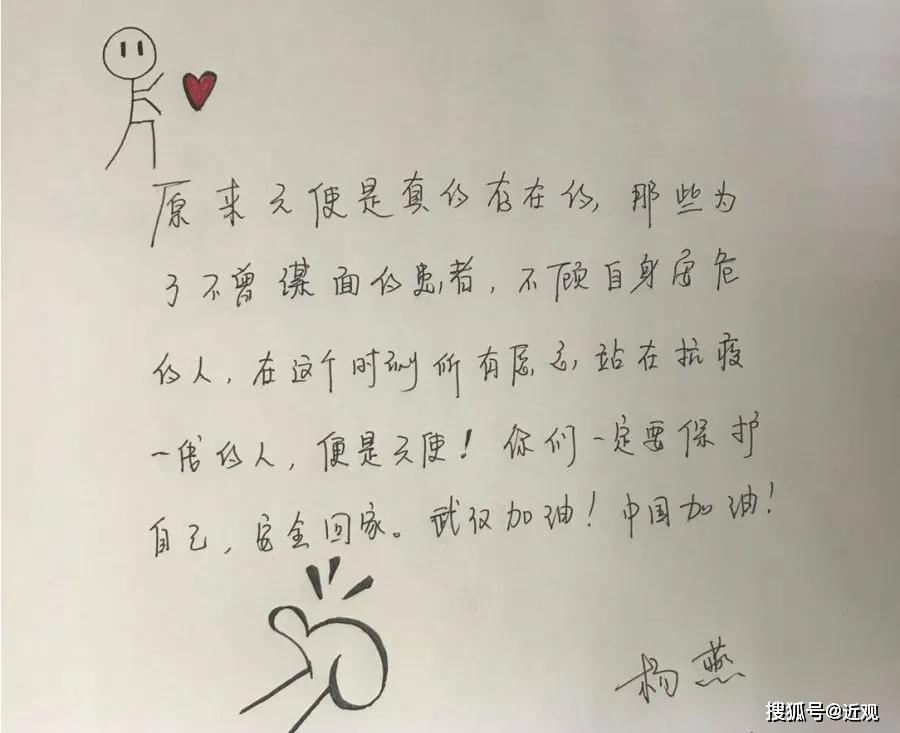 原来天使是真的存在的，那些为
了不曾谋面的患者，不顾自身居危
的人，在这个时刻所有愿意站在抗疫
一线的人，便是天使！你们一定要保护
自己，安全回家。武汉加油！中国加油！
杨燕
搜狐号@近观